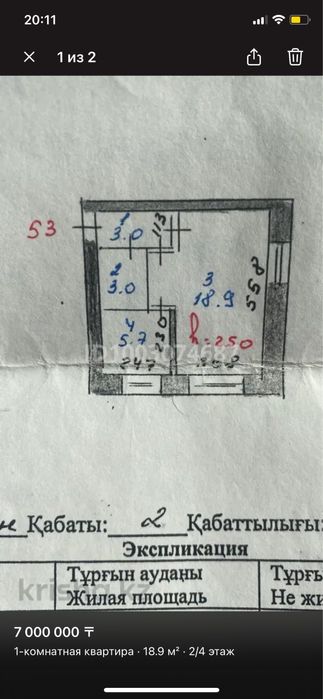 20:11
1 из 2
53
1
3.0
113
2
3.0
3
18.9
558
4
5.7
230
h=250
247
Қабаты: 2 Қабаттылығы:
Экспликация
Тұрғын ауданы
Жилая площадь
Тұрғы
Не жи
7 000 000 ₸
1-комнатная квартира · 18.9 м² · 2/4 этаж